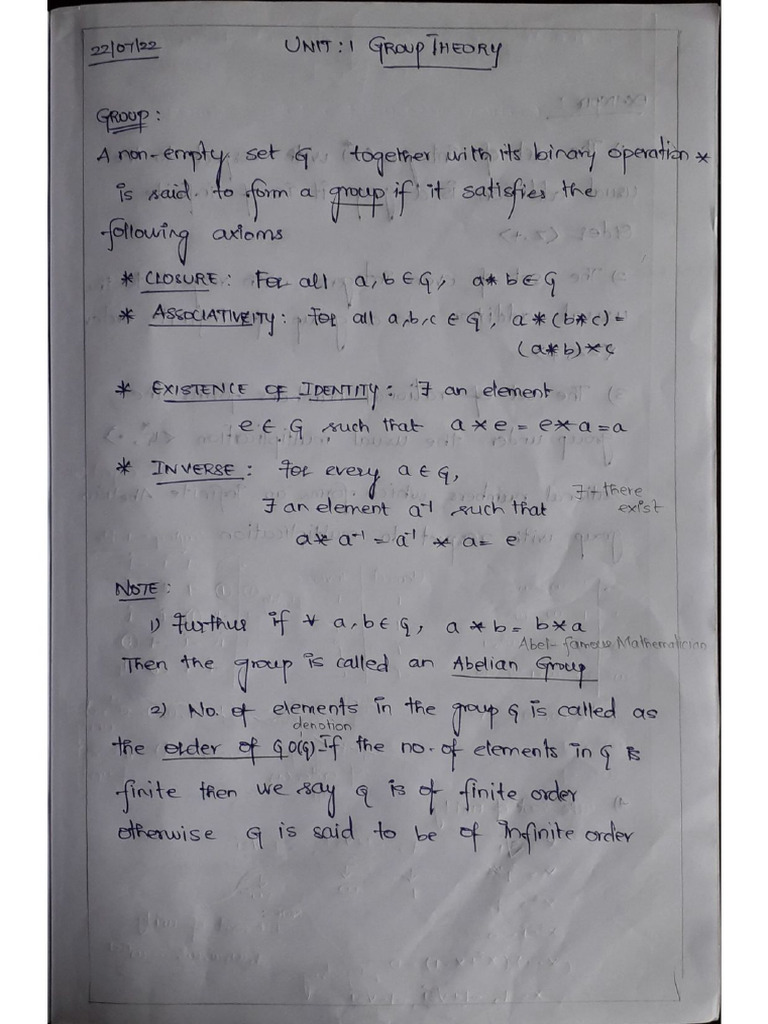 22/07/22
UNIT: 1 GROUP THEORY
GROUP:
A non-empty set G together with its binary operation *
is said to form a group if it satisfies the
following axioms
* CLOSURE: For all a, b ∈ G, a * b ∈ G
* ASSOCIATIVEITY: For all a, b, c ∈ G, a * (b * c) =
(a * b) * c
* EXISTENCE OF IDENTITY: ∃ an element
e ∈ G such that a * e = e * a = a
* INVERSE: For every a ∈ G,
∃ → there
exist
∃ an element a⁻¹ such that
a * a⁻¹ = a⁻¹ * a = e
NOTE:
1) Furthus if ∀ a, b ∈ G, a * b = b * a
Abel - famous Mathematician
Then the group is called an Abelian Group
2) No. of elements in the group G is called as
denotion
the order of G O(G) If the no. of elements in G is
finite then we say G is of finite order
otherwise G is said to be of Infinite order